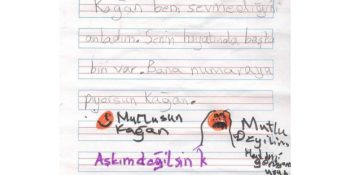 Kağan beni sevmediğin
anladım. Senin hayatında başka
biri var. Bana numaraya
pıyorsun Kağan.
Mutlusun
Kağan
Mutlu
Deyilim
Aşkım değilsin k